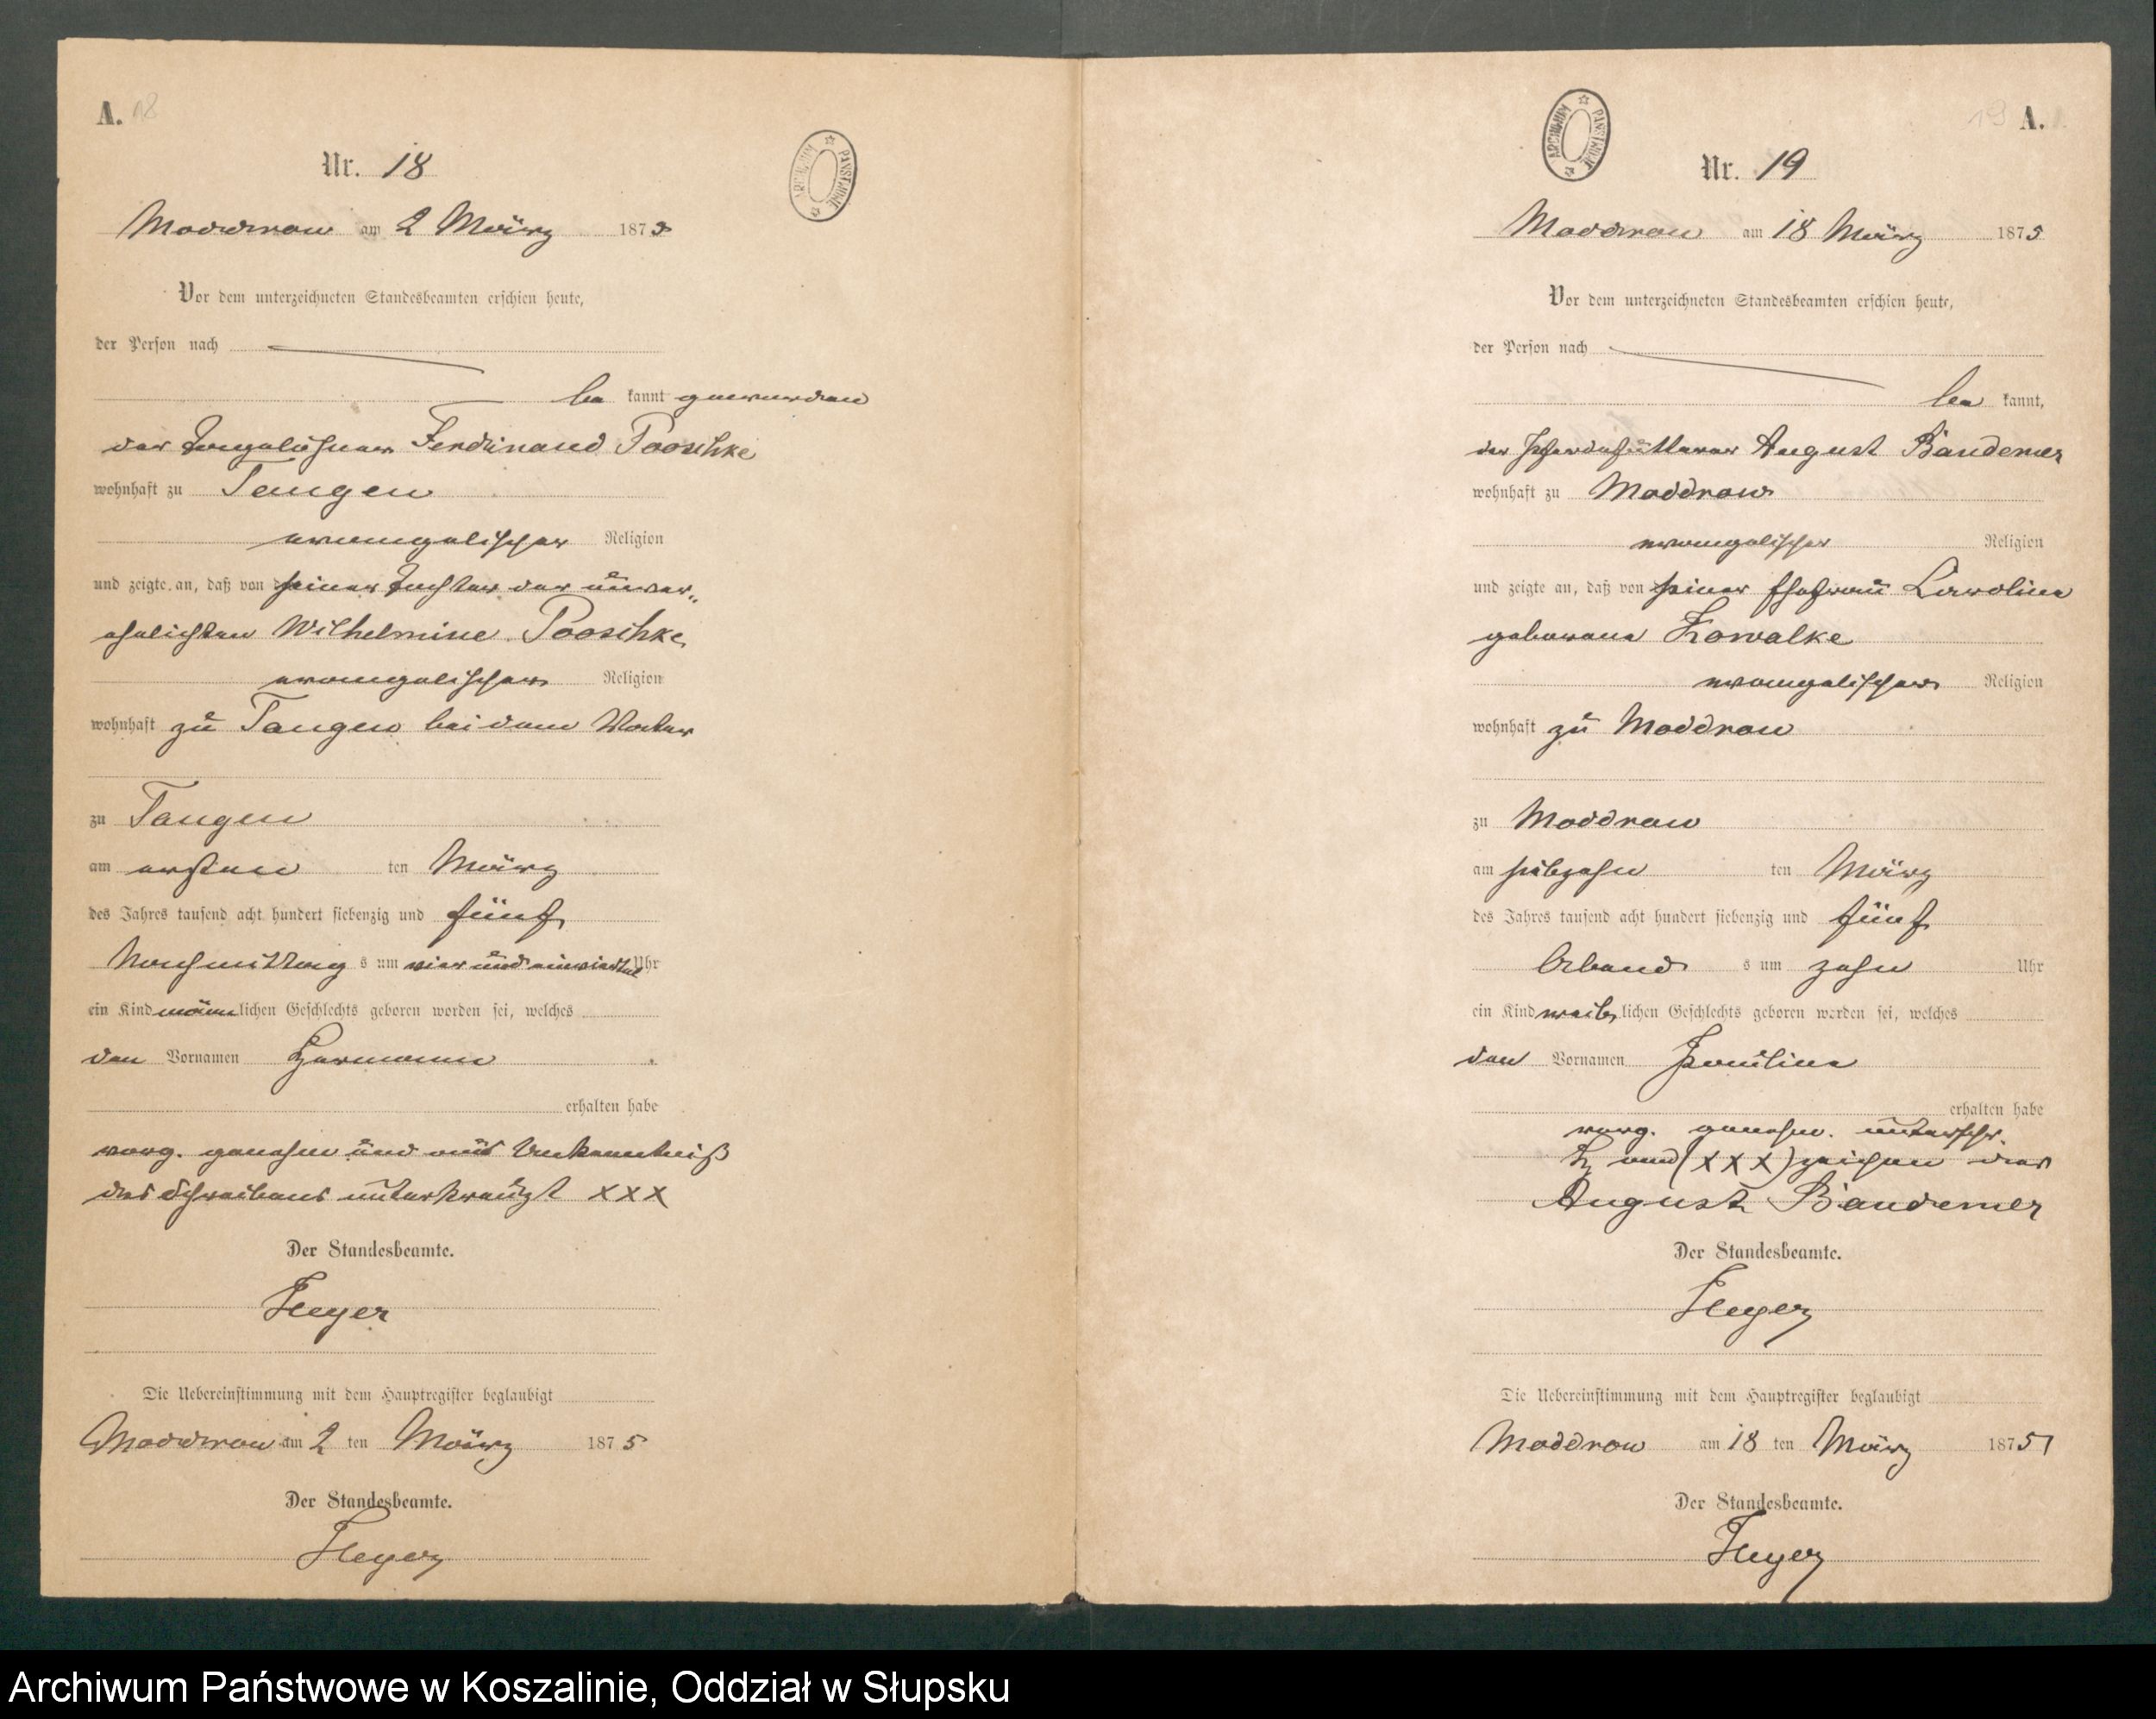 A. 18
Nr. 18
Moddrow am 2 März 1875
Vor dem unterzeichneten Standesbeamten erschien heute,
der Person nach
be kannt geworden
der Tagelöhner Ferdinand Pooschke
wohnhaft zu Tangen
evangelischer Religion
und zeigte an, daß von seiner Tochter der unver„
ehelichten Wilhelmine Pooschke
evangelischer Religion
wohnhaft zu Tangen bei dem Vater
zu Tangen
am ersten ten März
des Jahres tausend acht hundert siebenzig und fünf
Nachmittag s um vier und einviertel Uhr
ein Kind männlichen Geschlechts geboren worden sei, welches
den Vornamen Hermann
erhalten habe
vorg. genehm und aus Unkenntniß
des Schreibens unterkreuzt XXX
Der Standesbeamte.
Heyer
Die Uebereinstimmung mit dem Hauptregister beglaubigt
Moddrow am 2 ten März 1875
Der Standesbeamte.
Heyer
ARCHIWUM PAŃSTWOWE
19 A.
Nr. 19
Moddrow am 18 März 1875
Vor dem unterzeichneten Standesbeamten erschien heute,
der Person nach
be kannt,
der Pferdefütterer August Bandemer
wohnhaft zu Moddrow
evangelischer Religion
und zeigte an, daß von seiner Ehefrau Caroline
geborene Kowalke
evangelischer Religion
wohnhaft zu Moddrow
zu Moddrow
am siebzehn ten März
des Jahres tausend acht hundert siebenzig und fünf
Abend s um zehn Uhr
ein Kind weiblichen Geschlechts geboren worden sei, welches
den Vornamen Pauline
erhalten habe
vorg. genehm. unterschr.
(XXX) zeichen des
August Bandemer
Der Standesbeamte.
Heyer
Die Uebereinstimmung mit dem Hauptregister beglaubigt
Moddrow am 18 ten März 1875
Der Standesbeamte.
Heyer
ARCHIWUM PAŃSTWOWE
Archiwum Państwowe w Koszalinie, Oddział w Słupsku